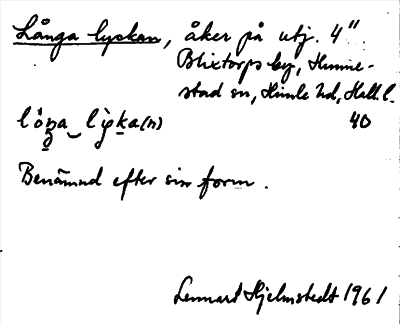 Långa lyckan, åker på utj. 4"
Blixtorps by, Hunne-
stad sn, Himle hd, Hall. l.
40
Benämnd efter sin form.
Lennart Hjelmstedt 1961